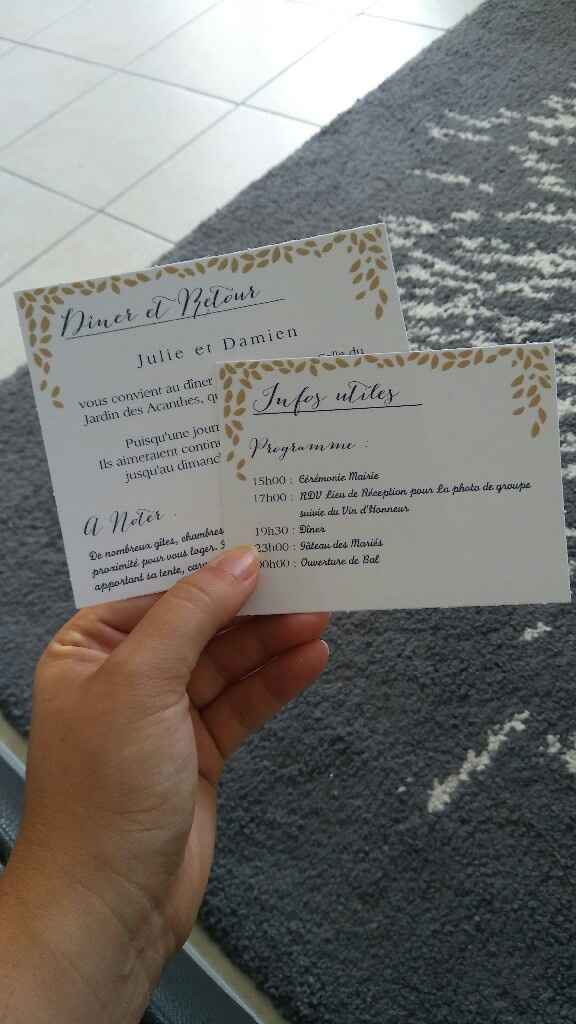 Dîner et Retour
Julie et Damien
vous convient au dîner
Jardin des Acanthes,
Puisqu'une
Ils aimeraient
jusqu'au
A Noter :
De nombreux gîtes, chambres
proximité pour vous loger.
apportant sa tente,
Infos utiles
Programme :
15h00 : Cérémonie Mairie
17h00 : RDV Lieu de Réception pour La photo de groupe
suivie du Vin d'Honneur
19h30 : Dîner
23h00 : Gâteau des Mariés
00h00 : Ouverture de Bal